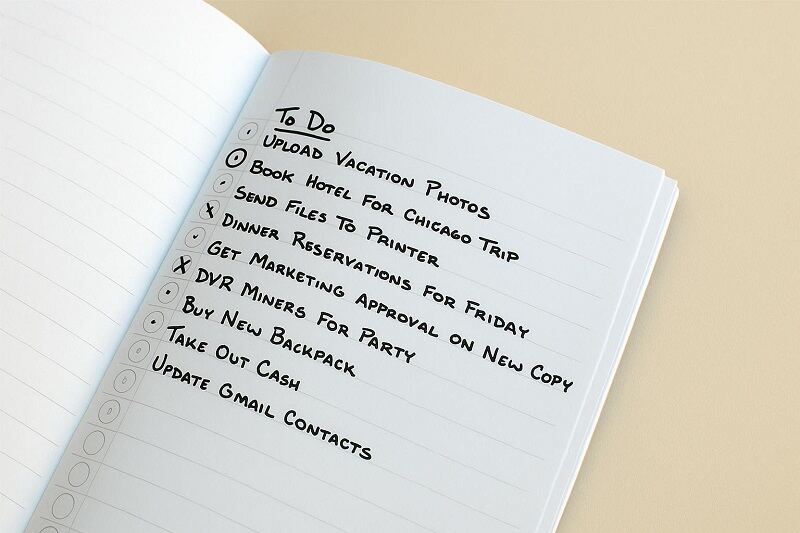 To Do
Upload Vacation Photos
Book Hotel For Chicago Trip
Send Files To Printer
X Dinner Reservations For Friday
Get Marketing Approval on New Copy
X DVR Miners For Party
Buy New Backpack
Take Out Cash
Update Gmail Contacts